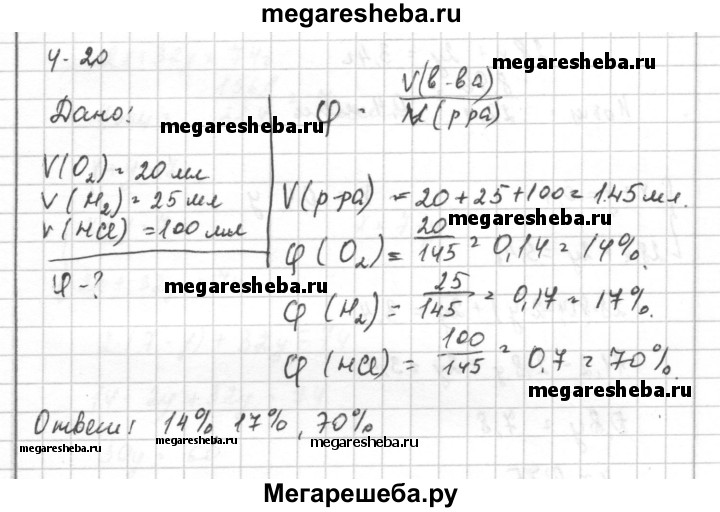 megaresheba.ru
4-20
Дано:
V(O₂) = 20 мл
V(H₂) = 25 мл
V(HCl) = 100 мл
φ - ?
φ = V(в-ва) / M(р-ра)
V(р-ра) = 20 + 25 + 100 = 145 мл.
φ(O₂) = 20/145 = 0,14 = 14%.
φ(H₂) = 25/145 = 0,17 = 17%.
φ(HCl) = 100/145 = 0,7 = 70%.
Ответ: 14% 17%, 70%
megaresheba.ru
megaresheba.ru
megaresheba.ru
megaresheba.ru
megaresheba.ru
megaresheba.ru
megaresheba.ru
Мегарешеба.ру